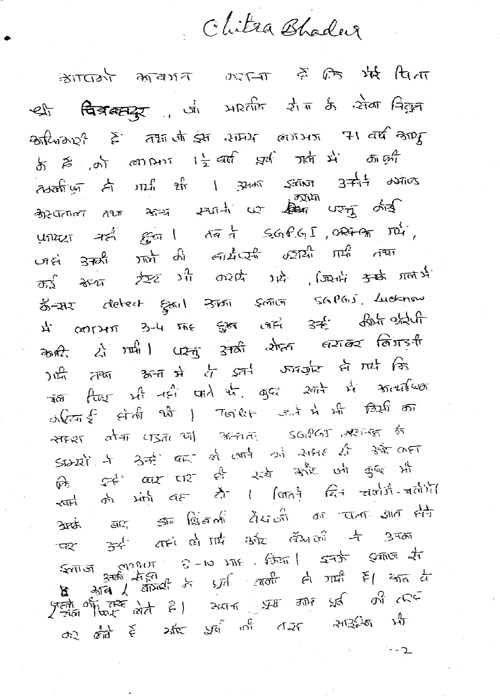 Chitra Bhadur
आपको अवगत कराना है कि मेरे पिता
श्री चित्रबहादुर, जो भारतीय सेना के सेवा निवृत
अधिकारी हैं तथा जो इस समय लगभग 71 वर्ष आयु
के हैं, को लगभग 1½ वर्ष पूर्व गले में काफी
तकलीफ हो गयी थी। उसका इलाज उन्होंने
अस्पताल तथा अन्य स्थानों पर कराया परन्तु कोई
फायदा नहीं हुआ। तब वे SGPGI, गये,
जहां उनकी गले की बायोप्सी करायी गयी तथा
कई अन्य टेस्ट भी कराये गये, जिसमें उनके गले में
कैन्सर detect हुआ। उनका इलाज SGPGI, Lucknow
में लगभग 3-4 माह हुआ जहां उन्हें कीमो थैरेपी
आदि दी गयी। परन्तु उनकी सेहत बराबर बिगड़ती
गयी तथा अन्त में वे इतने कमजोर हो गये कि
चल फिर भी नहीं पाते थे, कुछ खाने में अत्यधिक
कठिनाई होती थी। Toilet जाने में भी किसी का
सहारा लेना पड़ता था। अन्ततः SGPGI, लखनऊ के
डाक्टरों ने उन्हें घर ले जाने की सलाह दी और कहा
कि इन्हें घर पर ही रखें और जो कुछ भी
खाने को मांगे वह दें। जितने दिन चलेंगे-चलेंगे।
उसके बाद वैद्यजी का पता ज्ञात होने
पर उन्हें वहां ले गये और वैद्यजी ने उनका
इलाज लगभग माह किया। इनके इलाज से
उनकी सेहत में पूर्व वाली हो गयी है। अब वे
पहले की तरह चल फिर लेते हैं। अपना काम पूर्व की तरह
कर लेते हैं और पूर्व की तरह साइकिल भी
--2